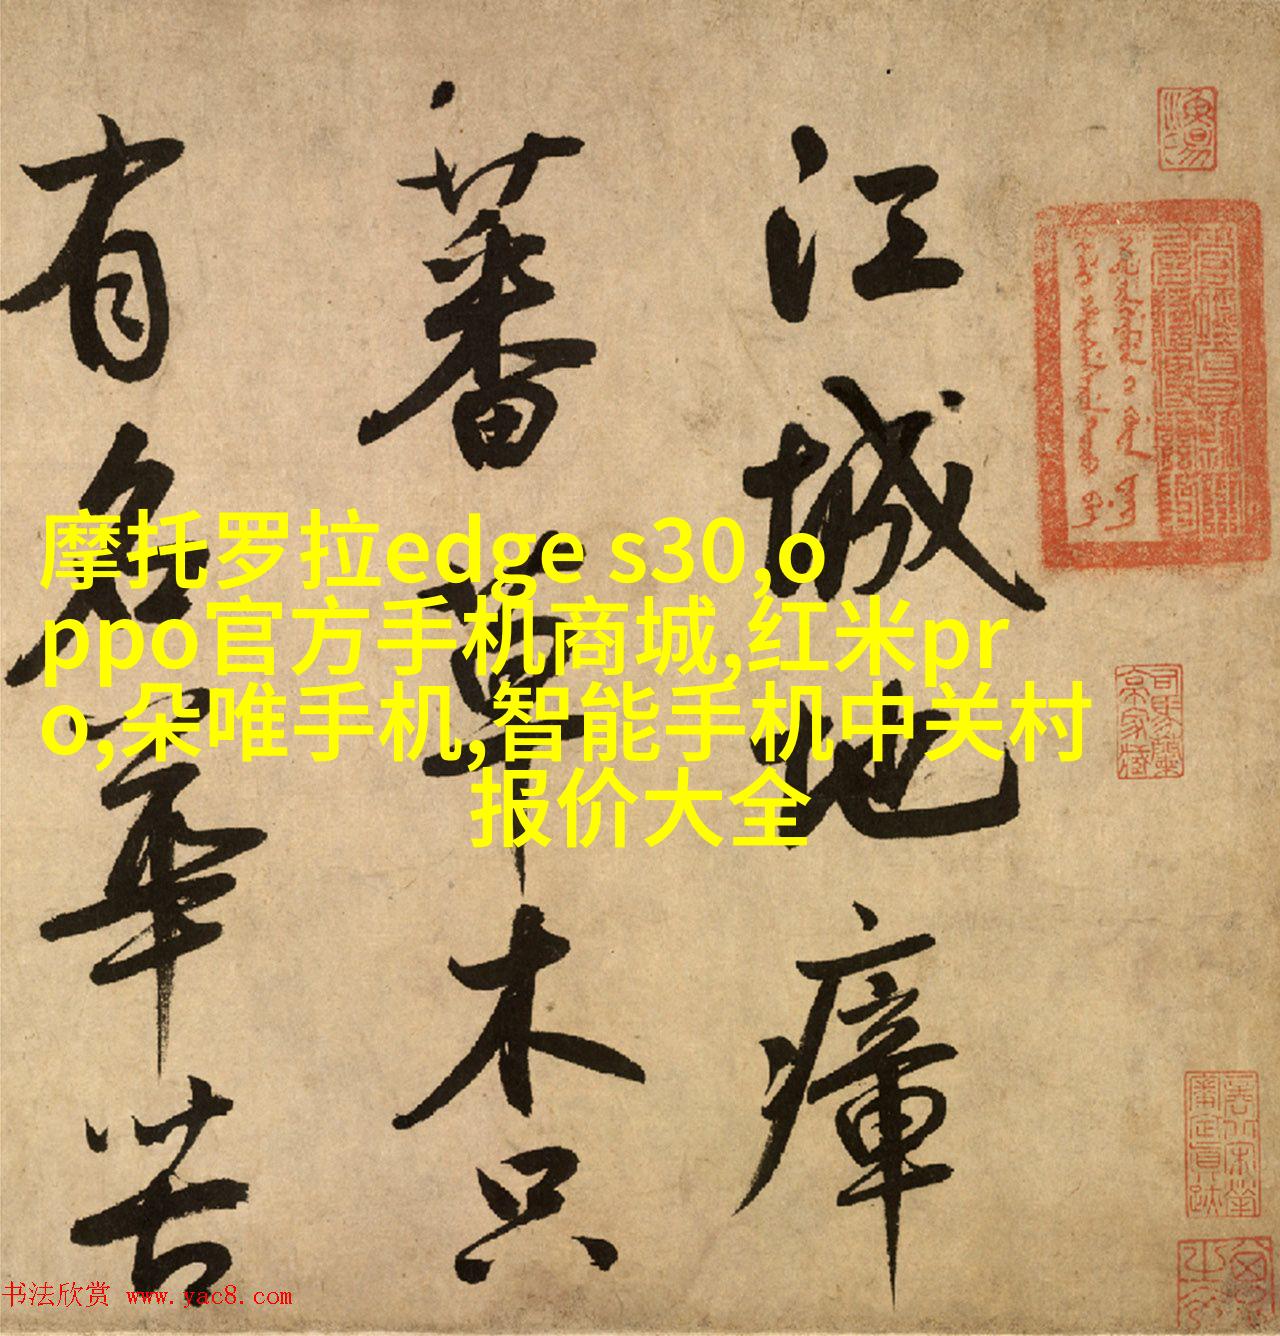 江城地瘴
蕃草木只
有名華苦
摩托罗拉edge s30,o
ppo官方手机商城,红米pr
o,朵唯手机,智能手机中关村
报价大全
书法欣赏 www.yac8.com